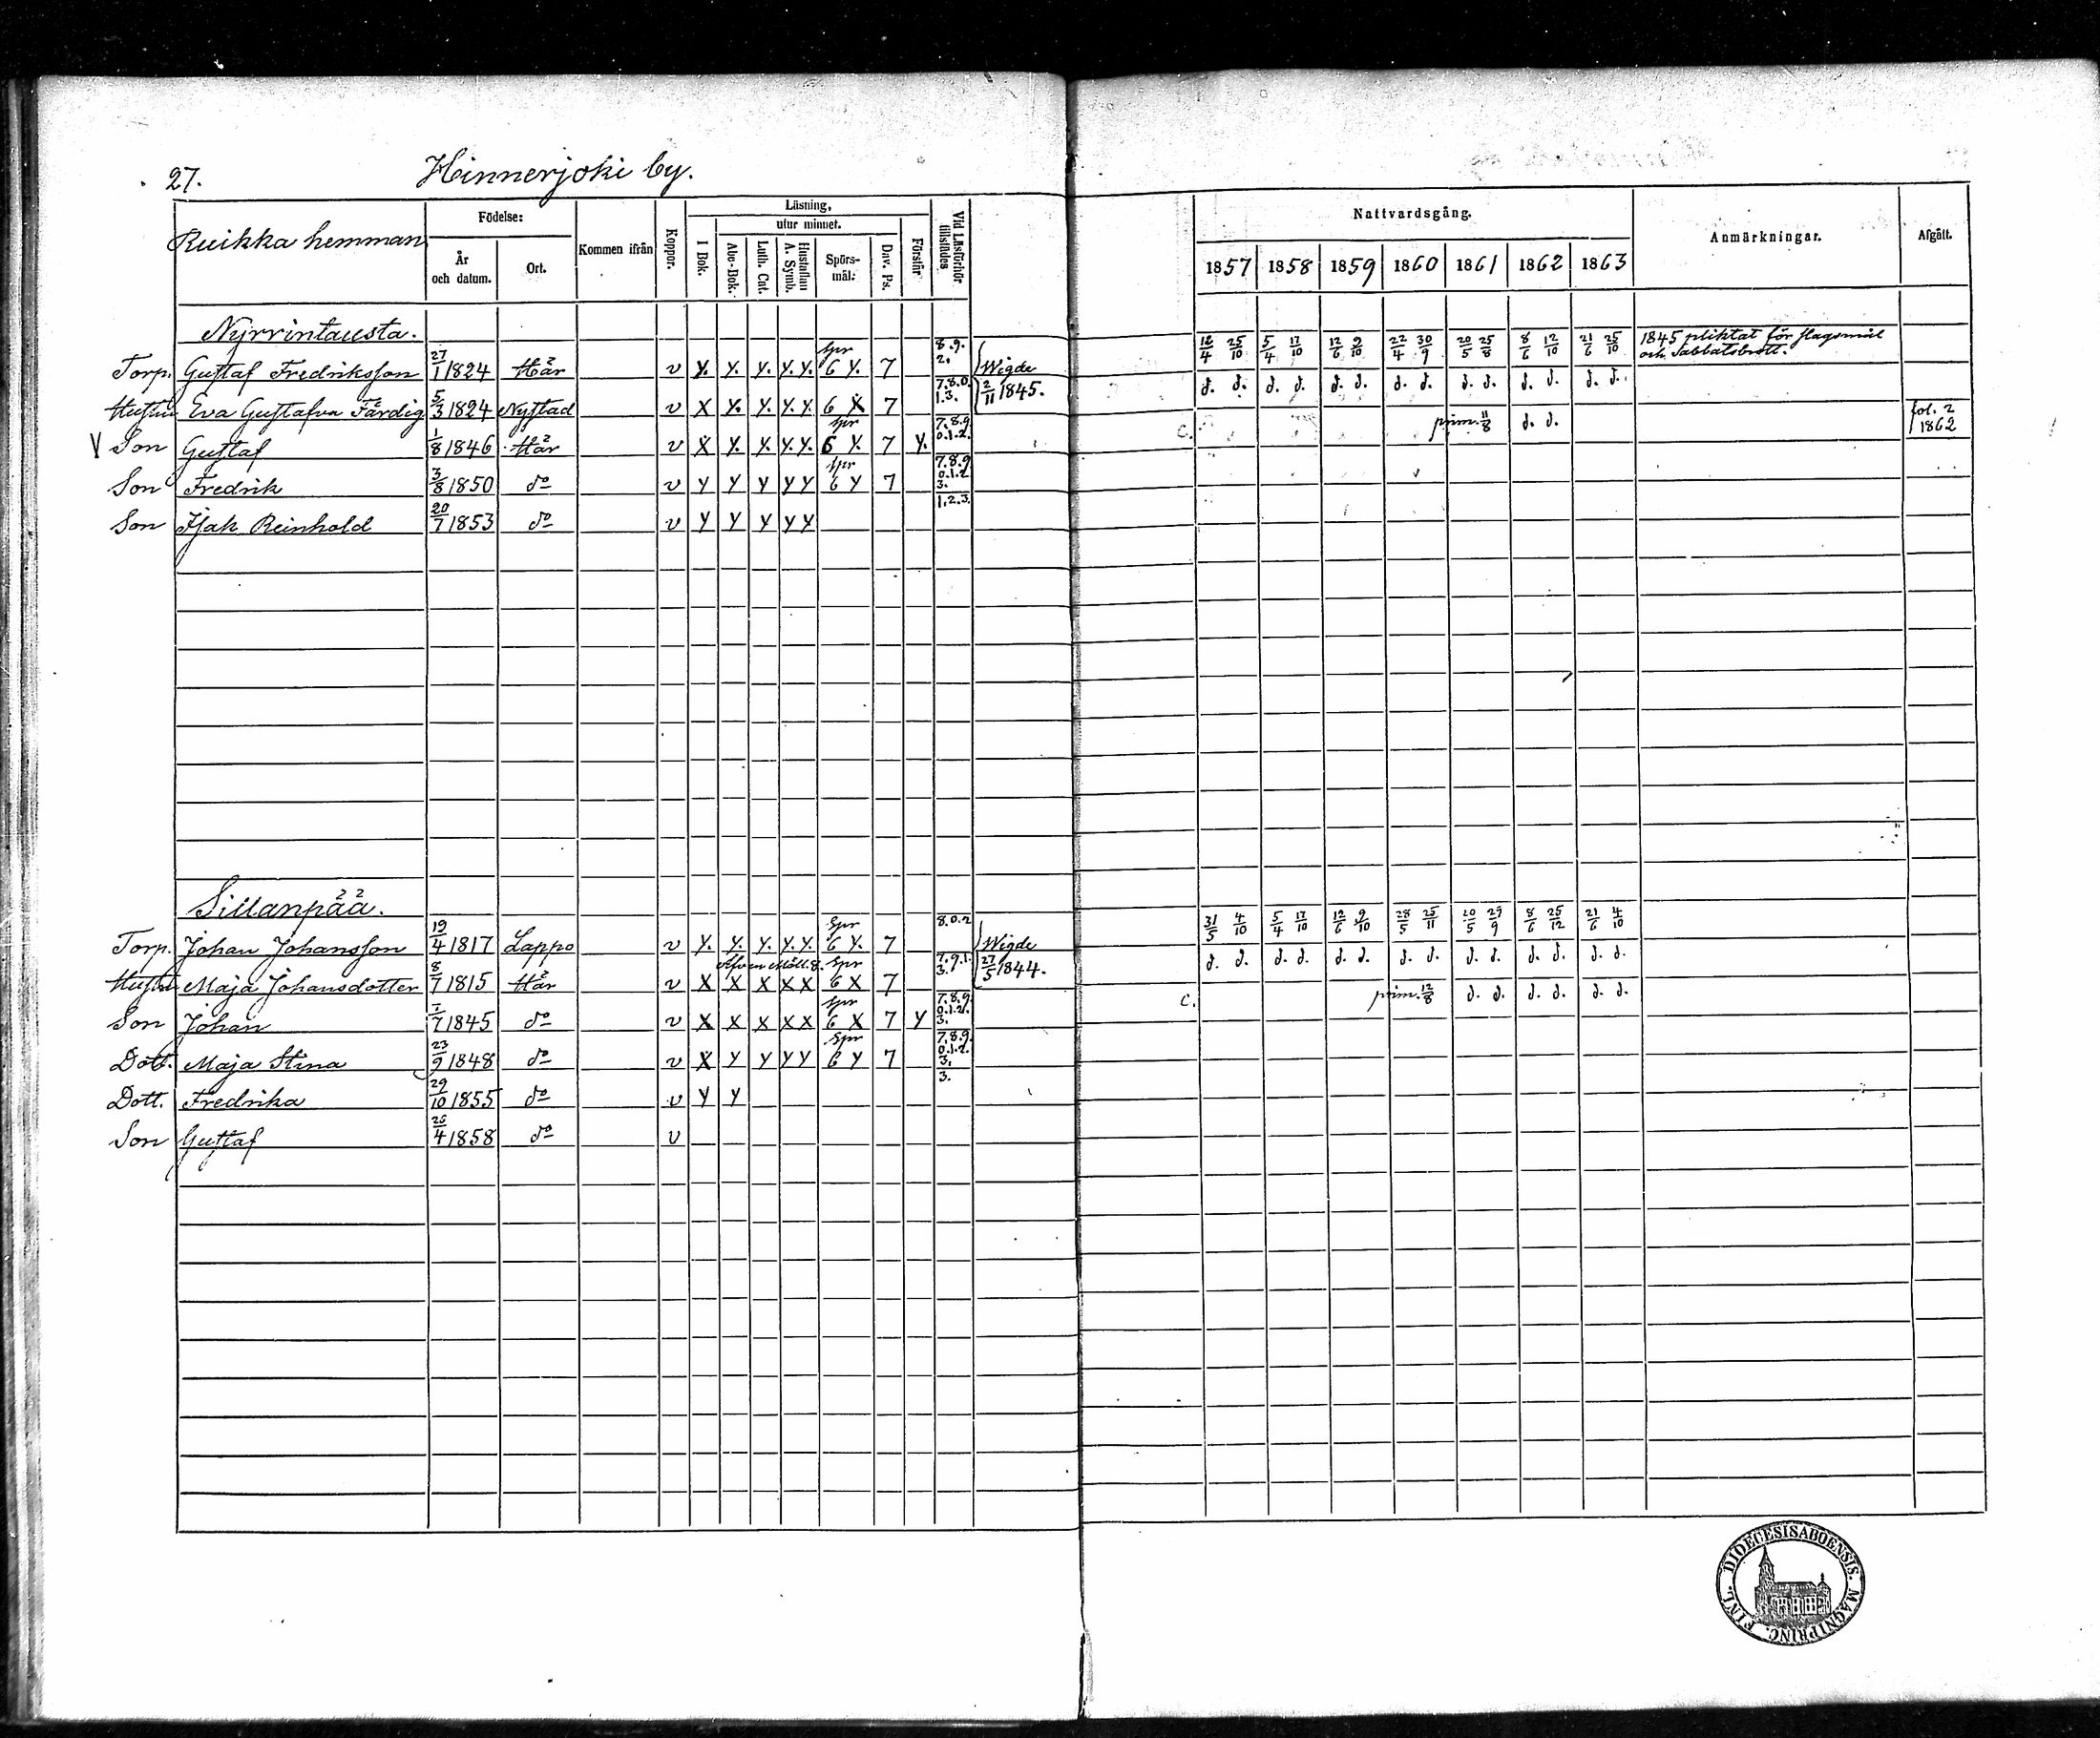 27. Hinnerjoki by.
Ruikka hemman
Födelse:
År och datum.
Ort.
Kommen ifrån
Koppor.
Läsning,
I Bok.
utur minnet.
Abc-Bok.
Luth. Cat.
Hustaflan A. Symb.
Spörs-mål:
Dav. Ps.
Förstår
Vid Läsförhör tillstädes
Nattvardsgång.
1857 1858 1859 1860 1861 1862 1863
Anmärkningar.
Afgått.
Nyrrintausta.
Torp. Gustaf Fredriksson 27/1 1824 Här v y. y. y. y. y. spr 6 y. 7 8.9. 2. Wigde 2/11 1845. 18/4 25/10 5/4 17/10 12/6 9/10 22/4 30/9 20/5 25/8 8/6 12/10 21/6 25/10 1845 pliktat för slagsmål och Sabbatsbrott.
Hustru Eva Gustafva Färdig 5/3 1824 Nystad v X y. y. y. y. 6 X 7 7.8.0. 1.3. d. d. d. d. d. d. d. d. d. d. d. d. d. d.
V Son Gustaf 1/8 1846 Här v X y. y. y. y. spr 6 y. 7 y. 7.8.9. 0.1.2. c. prim. 11/8 d. d. fol. 2 1862
Son Fredrik 3/8 1850 do v y y y y y spr 6 y 7 7.8.9. 0.1.2. 3.
Son Isak Reinhold 20/7 1853 do v y y y y y 1.2.3.
Sillanpää.
Torp. Johan Johansson 19/4 1817 Lappo v y. y. y. y. y. Spr 6 y. 7 8.0.2 Wigde 27/5 1844. 31/5 4/10 5/4 17/10 12/6 9/10 28/5 25/11 20/5 29/9 8/6 25/12 21/6 4/10
Hustru Maja Johansdotter 8/7 1815 Här v X X X X X Spr 6 X 7 7.9.1. 3. d. d. d. d. d. d. d. d. d. d. d. d. d. d.
Son Johan 7/7 1845 do v X X X X X Spr 6 X 7 y 7.8.9. 0.1.2. 3. c. prim. 12/8 d. d. d. d. d. d.
Dott. Maja Stina 23/9 1848 do v X y y y y Spr 6 y 7 7.8.9. 0.1.2. 3.
Dott. Fredrika 29/10 1855 do v y y 3.
Son Gustaf 26/4 1858 do v
FINL. DIOECESIS ABOENSIS. MAGNI PRINC.